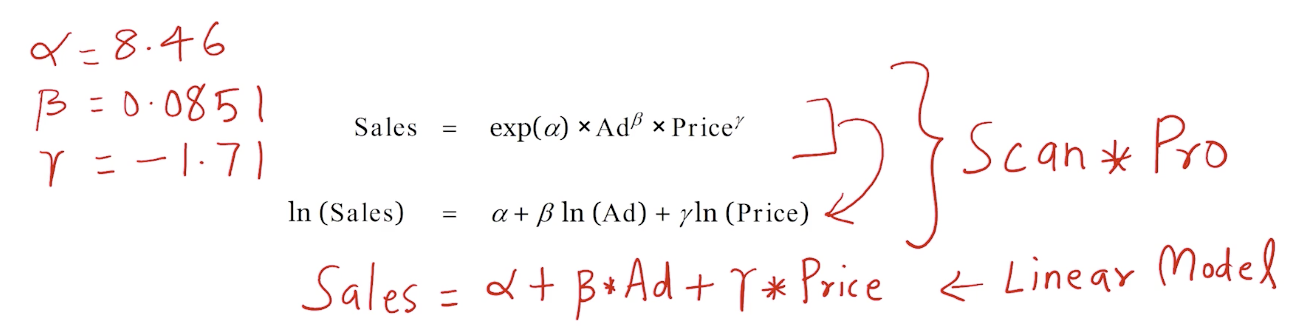 α = 8.46
β = 0.0851
γ = -1.71
Sales = exp(α) × Ad^β × Price^γ
ln (Sales) = α + β ln (Ad) + γ ln (Price)
Scan * Pro
Sales = α + β * Ad + γ * Price ← Linear Model